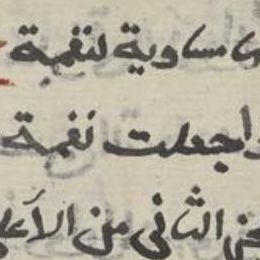 مساوية لنغمة
اجعلت نغمة
الثانى من الأعلى